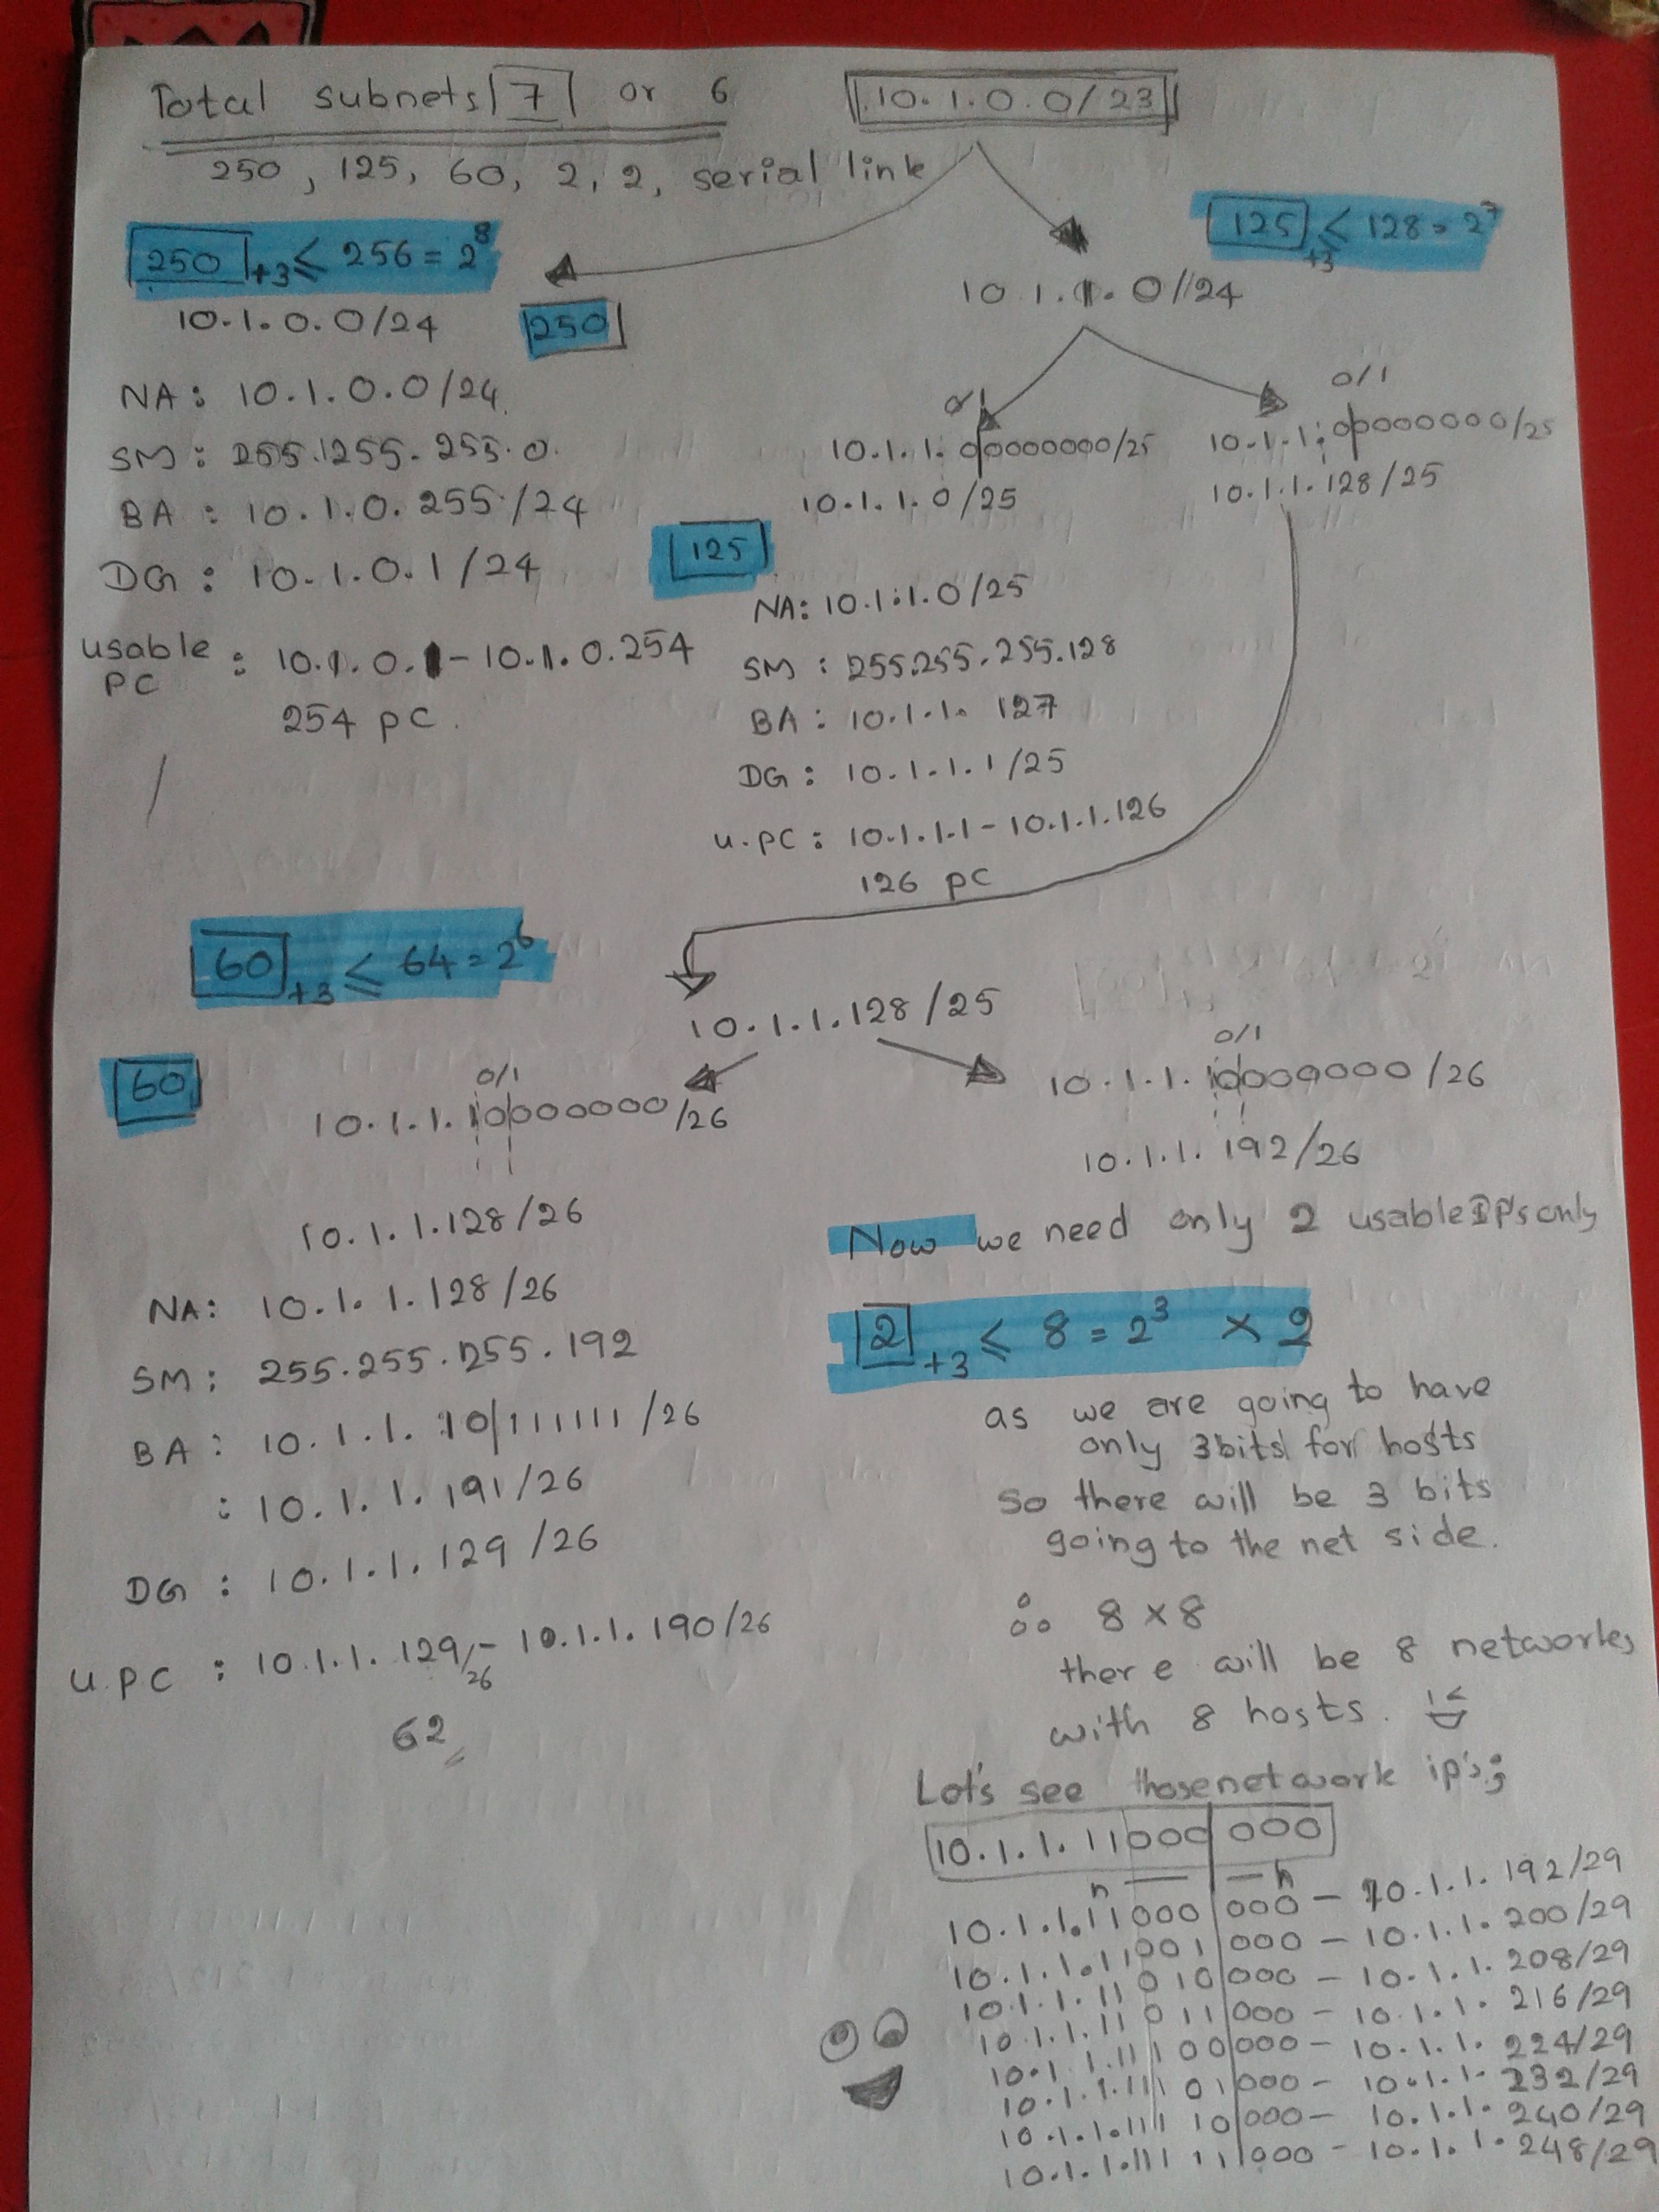 Total subnets 7 or 6
10.1.0.0/23
250, 125, 60, 2, 2, serial link
250 +3 ≤ 256 = 2⁸
10.1.0.0/24
250
NA: 10.1.0.0/24
SM: 255.255.255.0
BA: 10.1.0.255/24
DG: 10.1.0.1/24
usable PC: 10.1.0.1 - 10.1.0.254
254 PC.
125 +3 ≤ 128 = 2⁷
10.1.1.0/24
0/1
10.1.1.00000000/25
10.1.1.0/25
0/1
10.1.1.00000000/25
10.1.1.128/25
125
NA: 10.1.1.0/25
SM: 255.255.255.128
BA: 10.1.1.127
DG: 10.1.1.1/25
u.pc: 10.1.1.1 - 10.1.1.126
126 PC
60 +3 ≤ 64 = 2⁶
10.1.1.128/25
60
0/1
10.1.1.10000000/26
10.1.1.128/26
NA: 10.1.1.128/26
SM: 255.255.255.192
BA: 10.1.1.10|111111/26
: 10.1.1.191/26
DG: 10.1.1.129/26
u.PC: 10.1.1.129/26 - 10.1.1.190/26
62
0/1
10.1.1.10000000/26
10.1.1.192/26
Now we need only 2 usable IP's only
2 +3 ≤ 8 = 2³ × 2
as we are going to have
only 3 bits for hosts
so there will be 3 bits
going to the net side.
∴ 8 × 8
there will be 8 networks
with 8 hosts.
Let's see those network ip's;
10.1.1.11000|000
n h
10.1.1.11000|000 - 10.1.1.192/29
10.1.1.11001|000 - 10.1.1.200/29
10.1.1.11010|000 - 10.1.1.208/29
10.1.1.11011|000 - 10.1.1.216/29
10.1.1.11100|000 - 10.1.1.224/29
10.1.1.11101|000 - 10.1.1.232/29
10.1.1.11110|000 - 10.1.1.240/29
10.1.1.11111|000 - 10.1.1.248/29